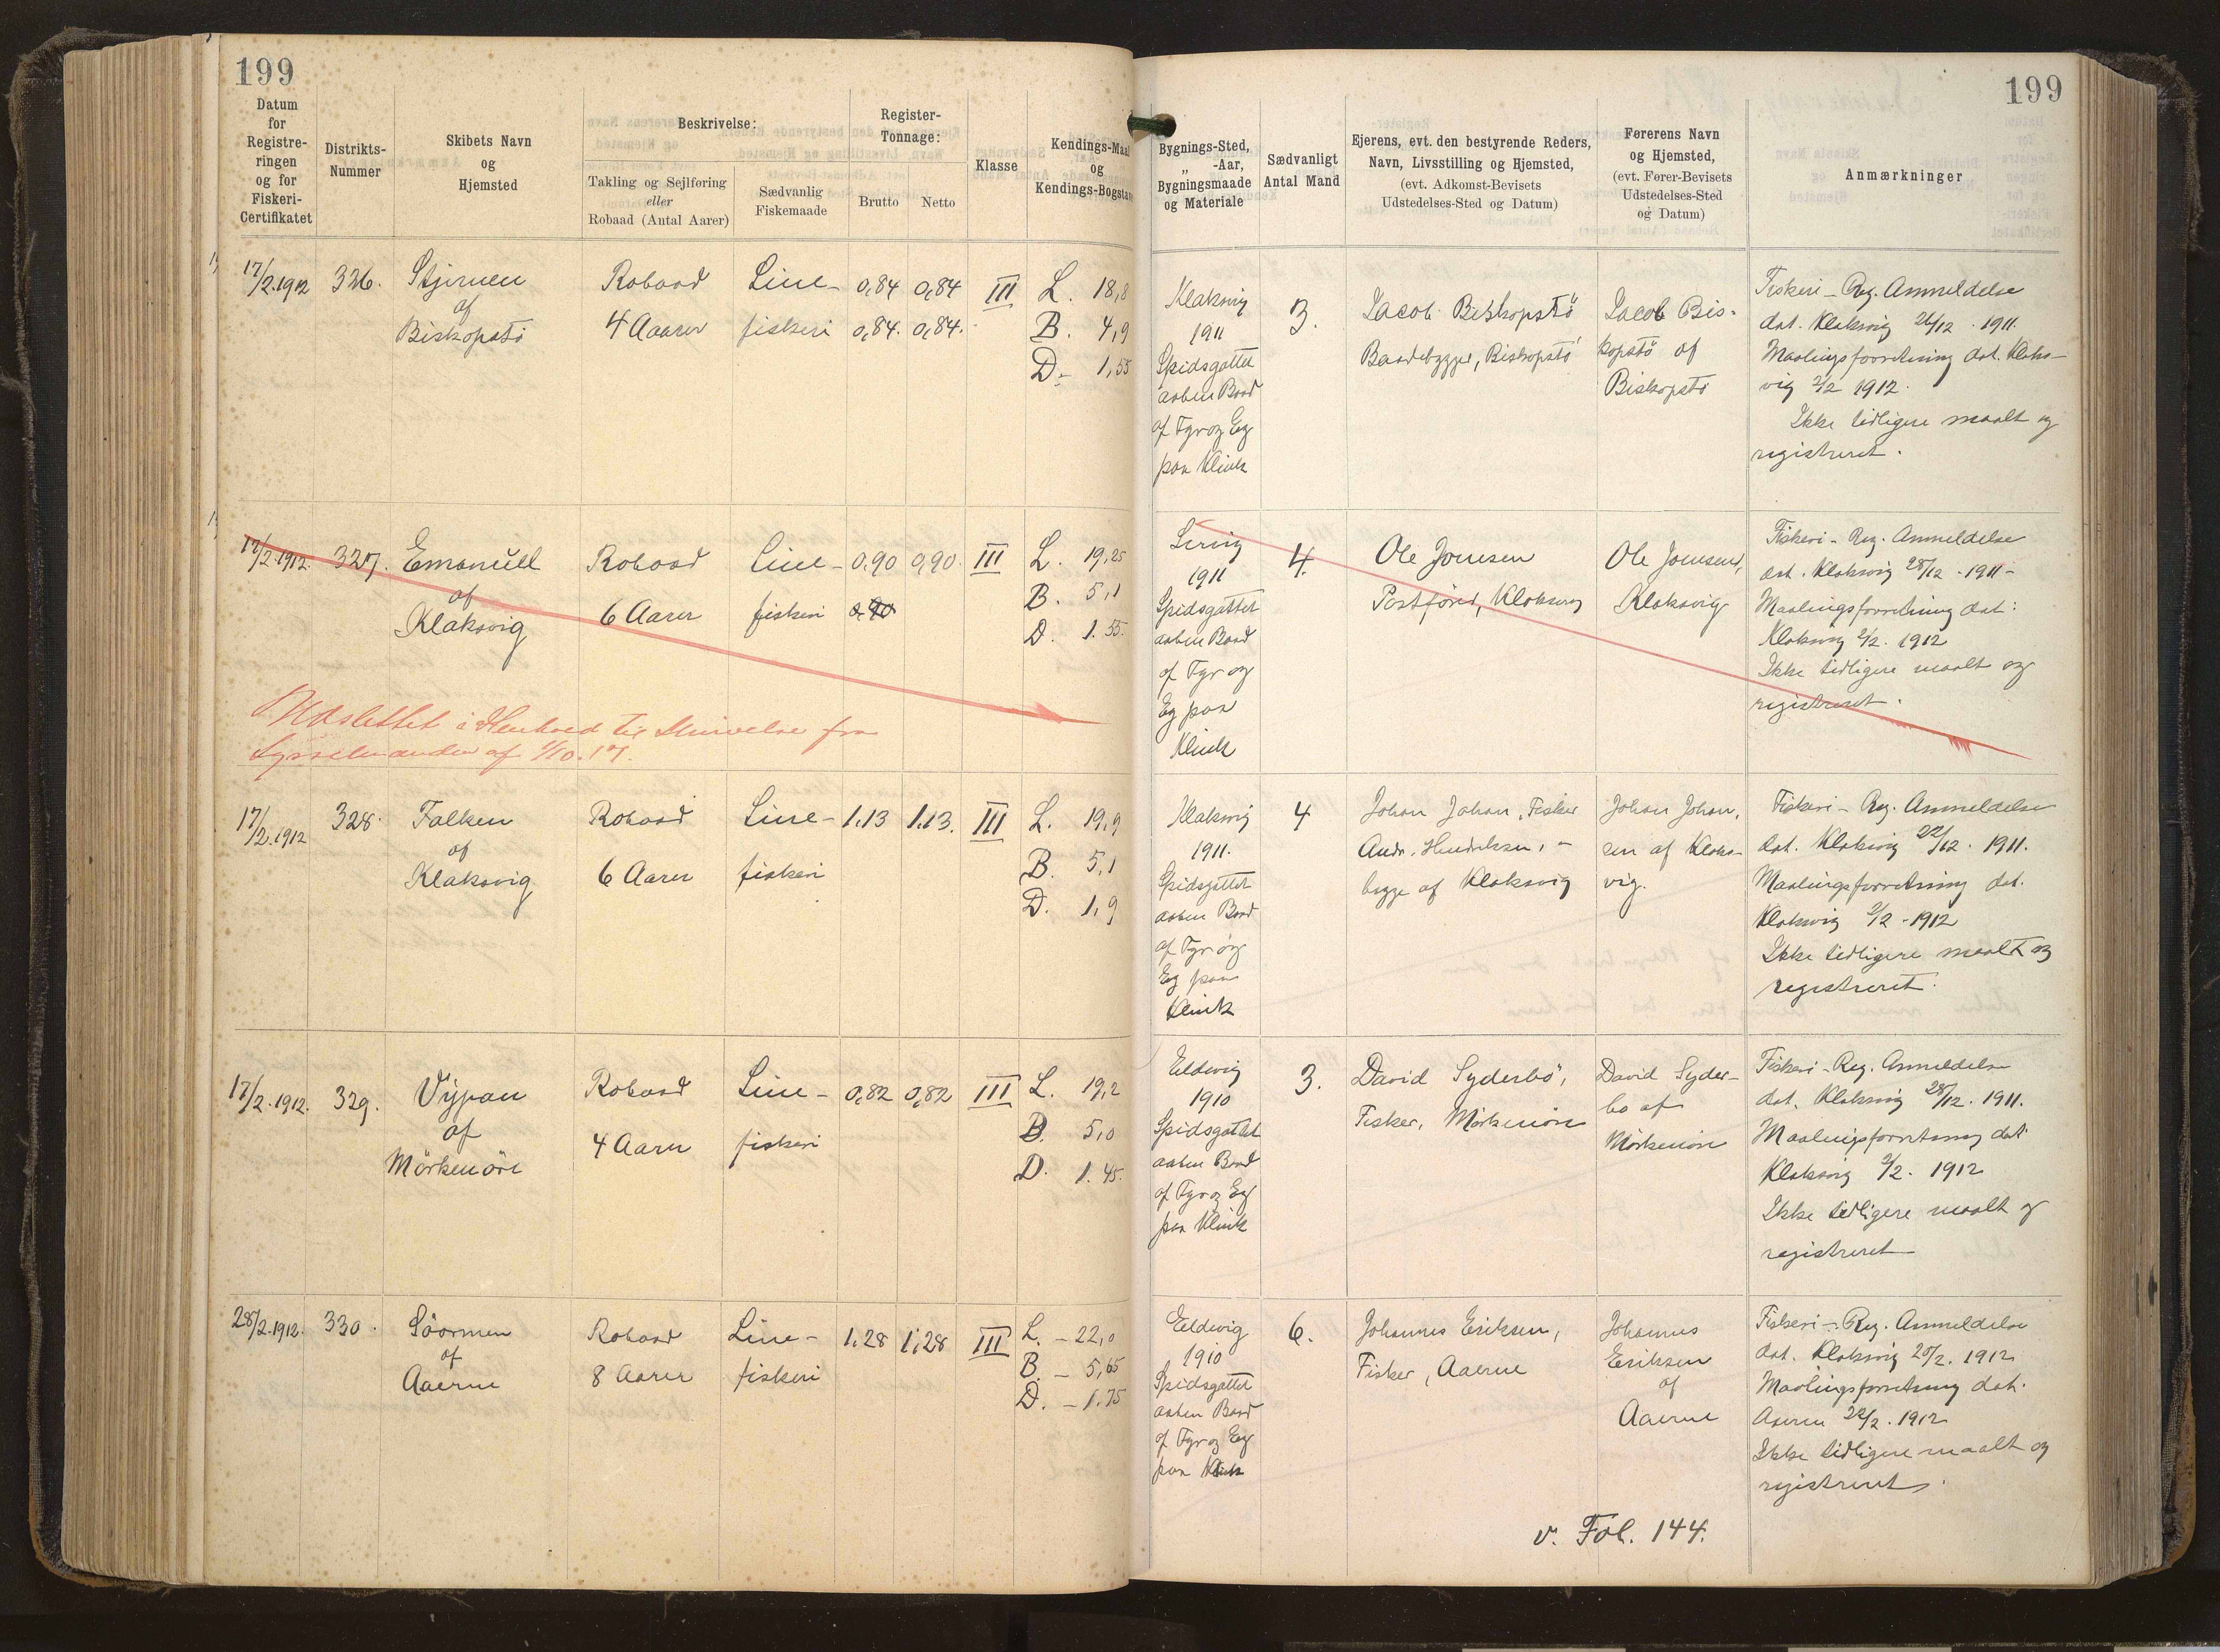 199
Datum
for
Registre-
ringen
og for
Fiskeri-
Certifikatet
Distrikts-
Nummer
Skibets Navn
og
Hjemsted
Beskrivelse:
Takling og Sejlføring
eller
Robaad (Antal Aarer)
Sædvanlig
Fiskemaade
Register-
Tonnage:
Brutto
Netto
Klasse
Kendings-Maal
og
Kendings-Bogstav
17/2.1912
326.
Stjernen
af
Biskopstö
Robaad
4 Aarer
Line-
fiskeri
0,84
0,84.
0,84
0,84.
III
L. 18,8
B. 4,9
D. 1,55
17/2.1912.
327.
Emanuell
af
Klaksvig
Robaad
6 Aarer
Line-
fiskeri
0,90
0,90
0,90.
III
L. 19,25
B. 5,1
D. 1.55.
Udslettet i Henhold til Skrivelse fra
Sysselmanden af 1/10.17.
17/2.1912
328.
Falken
af
Klaksvig
Robaad
6 Aarer
Line-
fiskeri
1.13
1.13.
III
L. 19,9
B. 5,1
D. 1,9
17/2.1912.
329.
Vijpan
af
Mörkenöre
Robaad
4 Aarer
Line-
fiskeri
0,82
0,82
III
L. 19,2
B. 5,0
D. 1.45.
28/2.1912.
330.
Söormen
af
Aaerne
Robaad
8 Aarer
Line-
fiskeri
1,28
1,28
III
L. - 22,0
B. - 5,65
D. - 1.75
199
Bygnings-Sted,
„ -Aar,
Bygningsmaade
og Materiale
Sædvanligt
Antal Mand
Ejerens, evt. den bestyrende Reders,
Navn, Livsstilling og Hjemsted,
(evt. Adkomst-Bevisets
Udstedelses-Sted og Datum)
Førerens Navn
og Hjemsted,
(evt. Fører-Bevisets
Udstedelses-Sted
og Datum)
Anmærkninger
Klaksvig
1911
Spidsgattet
aaben Baad
af Fyr og Eg
paa Klink
3.
Jacob Biskopstö
Baadebygger, Biskopstö
Jacob Bis-
kopstö af
Biskopstö
Fiskeri-Reg. Anmeldelse
dat. Klaksvig 26/12. 1911.
Maalingsforretning dat. Klaks-
vig 2/2 1912.
Ikke tidligere maalt og
registreret.
Lervig
1911
Spidsgattet
aaben Baad
af Fyr og
Eg paa
Klink
4.
Ole Joensen
Postförer, Klaksvig
Ole Joensen,
Klaksvig
Fiskeri-Reg. Anmeldelse
dat. Klaksvig 28/12. 1911-
Maalingsforretning dat:
Klaksvig 2/2. 1912
Ikke tidligere maalt og
registreret.
Klaksvig
1911.
Spidsgattet
aaben Baad
af Fyr og
Eg paa
Klink
4
Johan Johan, Fisker
Andr. Hendriksen, -
begge af Klaksvig
Johan Johan,
sen af Klaks-
vig.
Fiskeri-Reg. Anmeldelse
dat. Klaksvig 22/12. 1911.
Maalingsforretning dat.
Klaksvig 2/2-1912
Ikke tidligere maalt og
registreret.
Eldevig
1910
Spidsgattet
aaben Baad
af Fyr og Eg
paa Klink
3.
David Syderbö,
Fisker, Mörkenöre
David Syder-
bo af
Mörkenöre
Fiskeri-Reg. Anmeldelse
dat. Klaksvig 28/12. 1911.
Maalingsforretning dat
Klaksvig 2/2. 1912
Ikke tidligere maalt og
registreret
Eldevig
1910
Spidsgattet
aaben Baad
af Fyr og Eg
paa Klink
6.
Johannes Eriksen,
Fisker, Aaerne
Johannes
Eriksen
af
Aaerne
Fiskeri-Reg. Anmeldelse
dat. Klaksvig 20/2. 1912
Maalingsforretning dat.
Aaerne 22/2. 1912
Ikke tidligere maalt og
registreret.
v. Fol. 144.